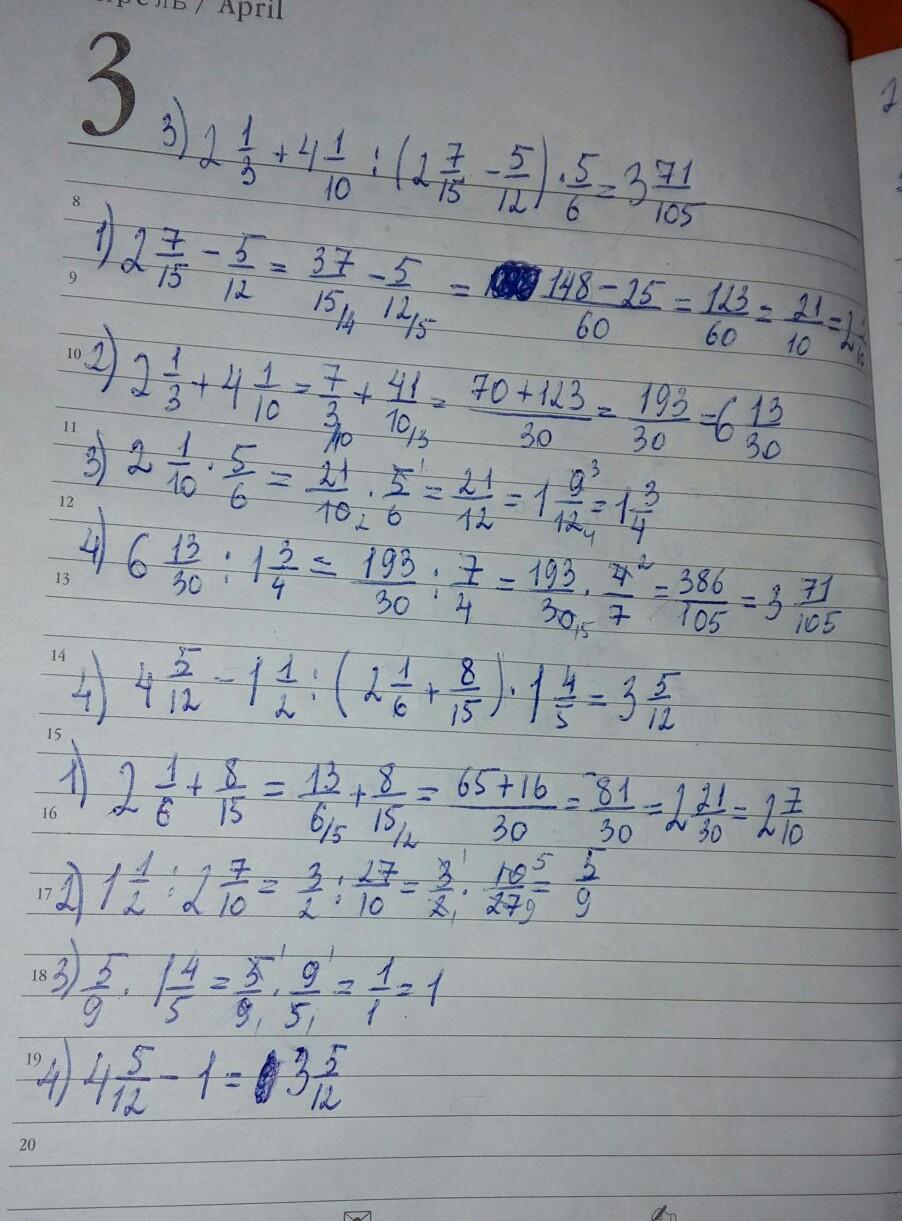 апрель / April
3
3) 2 1/3 + 4 1/10 : (2 7/15 - 5/12) · 5/6 = 3 71/105
8
1) 2 7/15 - 5/12 = 37/15/4 - 5/12/5 = 148-25/60 = 123/60 = 21/10 = 2 1/10
9
10 2) 2 1/3 + 4 1/10 = 7/3/10 + 41/10/3 = 70+123/30 = 193/30 = 6 13/30
11
3) 2 1/10 · 5/6 = 21/10 2 · 5 1/6 = 21/12 = 1 9 3/12 4 = 1 3/4
12
4) 6 13/30 : 1 3/4 = 193/30 : 7/4 = 193/30 15 · 4 2/7 = 386/105 = 3 71/105
13
14
4) 4 5/12 - 1 1/2 : (2 1/6 + 8/15) · 1 4/5 = 3 5/12
15
1) 2 1/6 + 8/15 = 13/6/5 + 8/15/2 = 65+16/30 = 81/30 = 2 21/30 = 2 7/10
16
17 2) 1 1/2 : 2 7/10 = 3/2 : 27/10 = 3 1/2 1 · 10 5/27 9 = 5/9
18 3) 5/9 · 1 4/5 = 5 1/9 1 · 9 1/5 1 = 1/1 = 1
19 4) 4 5/12 - 1 = 3 5/12
20